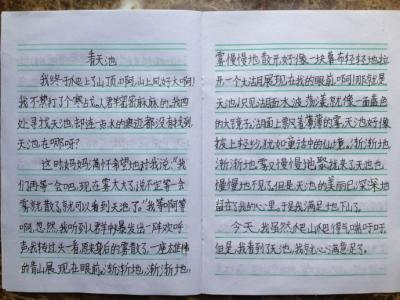 看天池
我终于爬上了山顶,啊,山上风好大啊!
我不禁打了个寒战,人群密密麻麻的。我四
处寻找天池,却连一点水的痕迹都没有找到,
天池在哪呀?
这时妈妈满怀希望地对我说:“我
们再等一会吧,现在雾太大了,说不定等一会
雾就散了,就可以看到天池了。”我等啊等
啊,忽然,我听到人群中暴发出一阵欢呼
声,我转过头一看,原来身后的雾散了,一座雄伟
的青山展现在眼前。渐渐地,渐渐地,
雾慢慢地散开,好像一块幕布轻轻地拉
开,一个大湖展现在我的眼前,啊!那就是
天池,只见湖面水波荡漾,就像一面蓝色
的大镜子。湖面上罩着薄薄的雾,天池好像
披上轻纱,犹如童话中的仙境。渐渐地,
渐渐地,雾又慢慢地聚拢来了,天池也
慢慢地不见了。但是,天池的美丽已深深地
留在了我的心里。于是,我满足地下山了。
今天,我虽然爬山爬得气喘吁吁,
但是,我看到了天池,我就心满意足了。